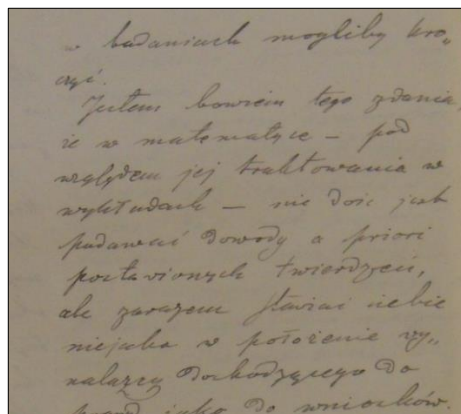 w badaniach mogliby kro„
czyć.
Jestem bowiem tego zdania,
że w matematyce – pod
względem jej traktowania w
wykładach – nie dość jest
podawać dowody a priori
postawionych twierdzeń,
ale zarazem stawiać siebie
niejako w położenie wy„
nalazcy dochodzącego do
prawd jako do wniosków.